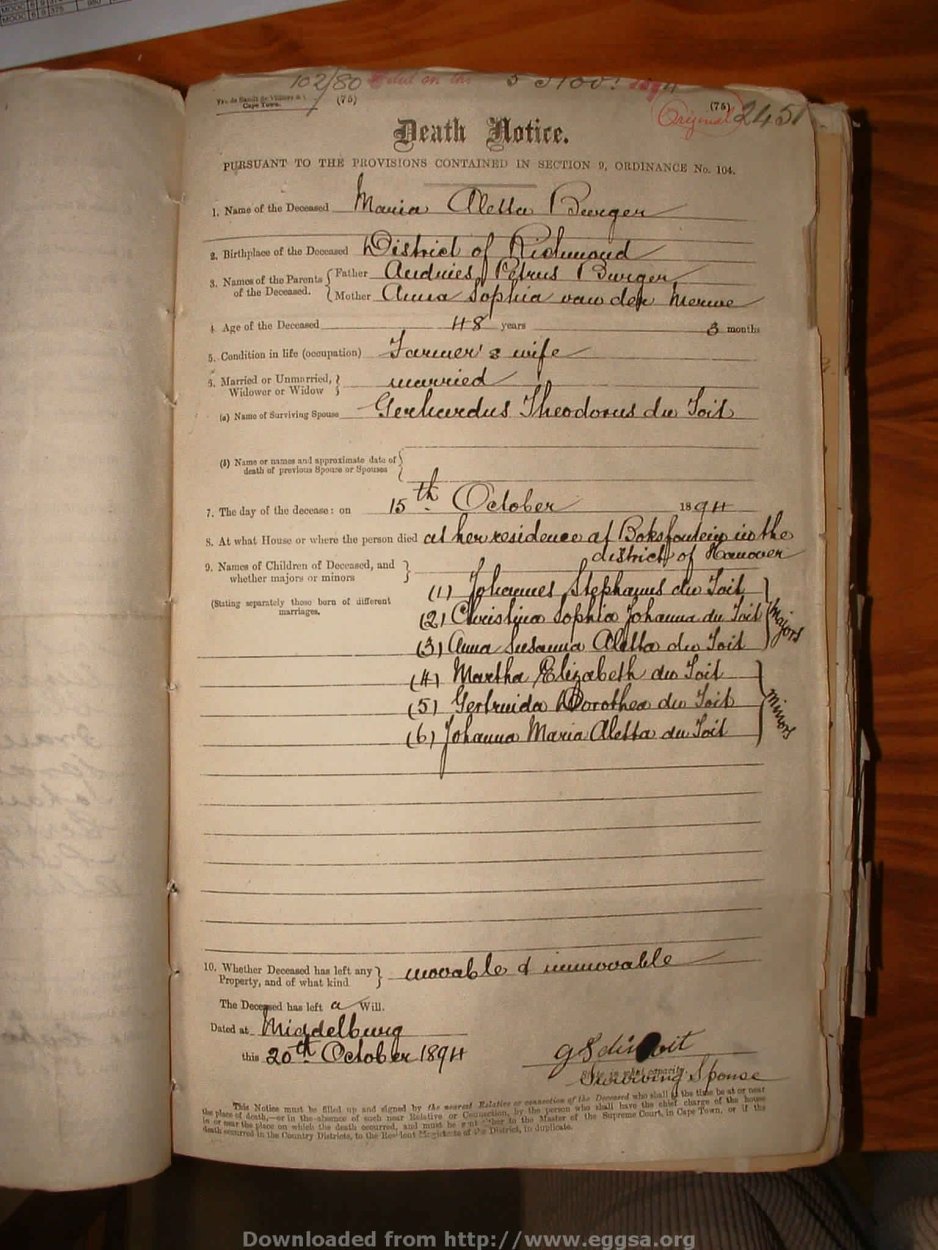 102/80
Van de Sandt de Villiers & Co.
Cape Town.
(75)
(75)
Original
2451
Death Notice.
PURSUANT TO THE PROVISIONS CONTAINED IN SECTION 9, ORDINANCE No. 104.
1. Name of the Deceased Maria Aletta Burger
2. Birthplace of the Deceased District of Richmond
3. Names of the Parents of the Deceased. Father Andries Petrus Burger
Mother Anna Sophia van der Merwe
4. Age of the Deceased 48 years 3 months
5. Condition in life (occupation) Farmer's wife
6. Married or Unmarried, Widower or Widow married
(a) Name of Surviving Spouse Gerhardus Theodorus du Toit
(b) Name or names and approximate date of
death of previous Spouse or Spouses
7. The day of the decease: on 15th October 1894
8. At what House or where the person died at her residence at Boksfontein in the
district of Hanover
9. Names of Children of Deceased, and
whether majors or minors
(Stating separately those born of different
marriages.
(1) Johannes Stephanus du Toit
(2) Christina Sophia Johanna du Toit
(3) Anna Susanna Aletta du Toit
Majors
(4) Martha Elizabeth du Toit
(5) Gertruida Dorothea du Toit
(6) Johanna Maria Aletta du Toit
Minors
10. Whether Deceased has left any
Property, and of what kind movable & immovable
The Deceased has left a Will.
Dated at Middelburg
this 20th October 1894
Surviving Spouse
This Notice must be filled up and signed by the nearest Relative or connection of the Deceased who shall at the time be at or near
the place of death,—or in the absence of such near Relative or Connection, by the person who shall have the chief charge of the house
in or near the place on which the death occurred, and must be sent either to the Master of the Supreme Court, in Cape Town, or if the
death occurred in the Country Districts, to the Resident Magistrate of the District, in duplicate.
Downloaded from http://www.eggsa.org